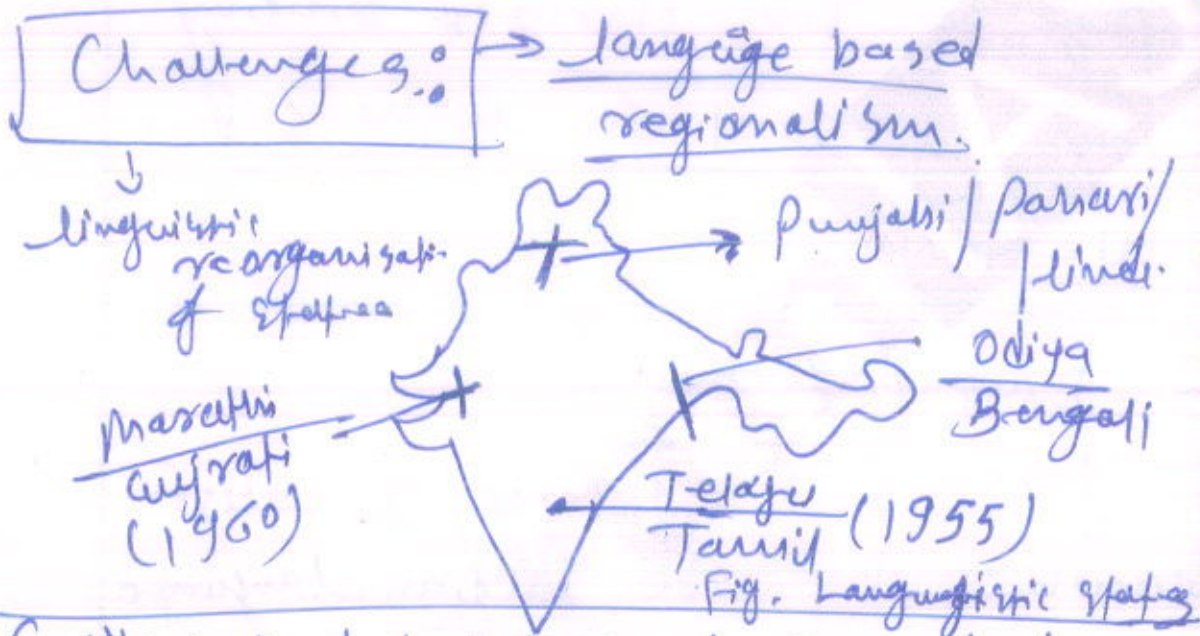 Challenges: → language based
regionalism.
↓
linguistic
reorganisati.
of States
Punjabi / Pahari /
/ Hindi.
Odiya
Bengali
Marathi
Gujrati
(1960)
Telagu
Tamil (1955)
Fig. States